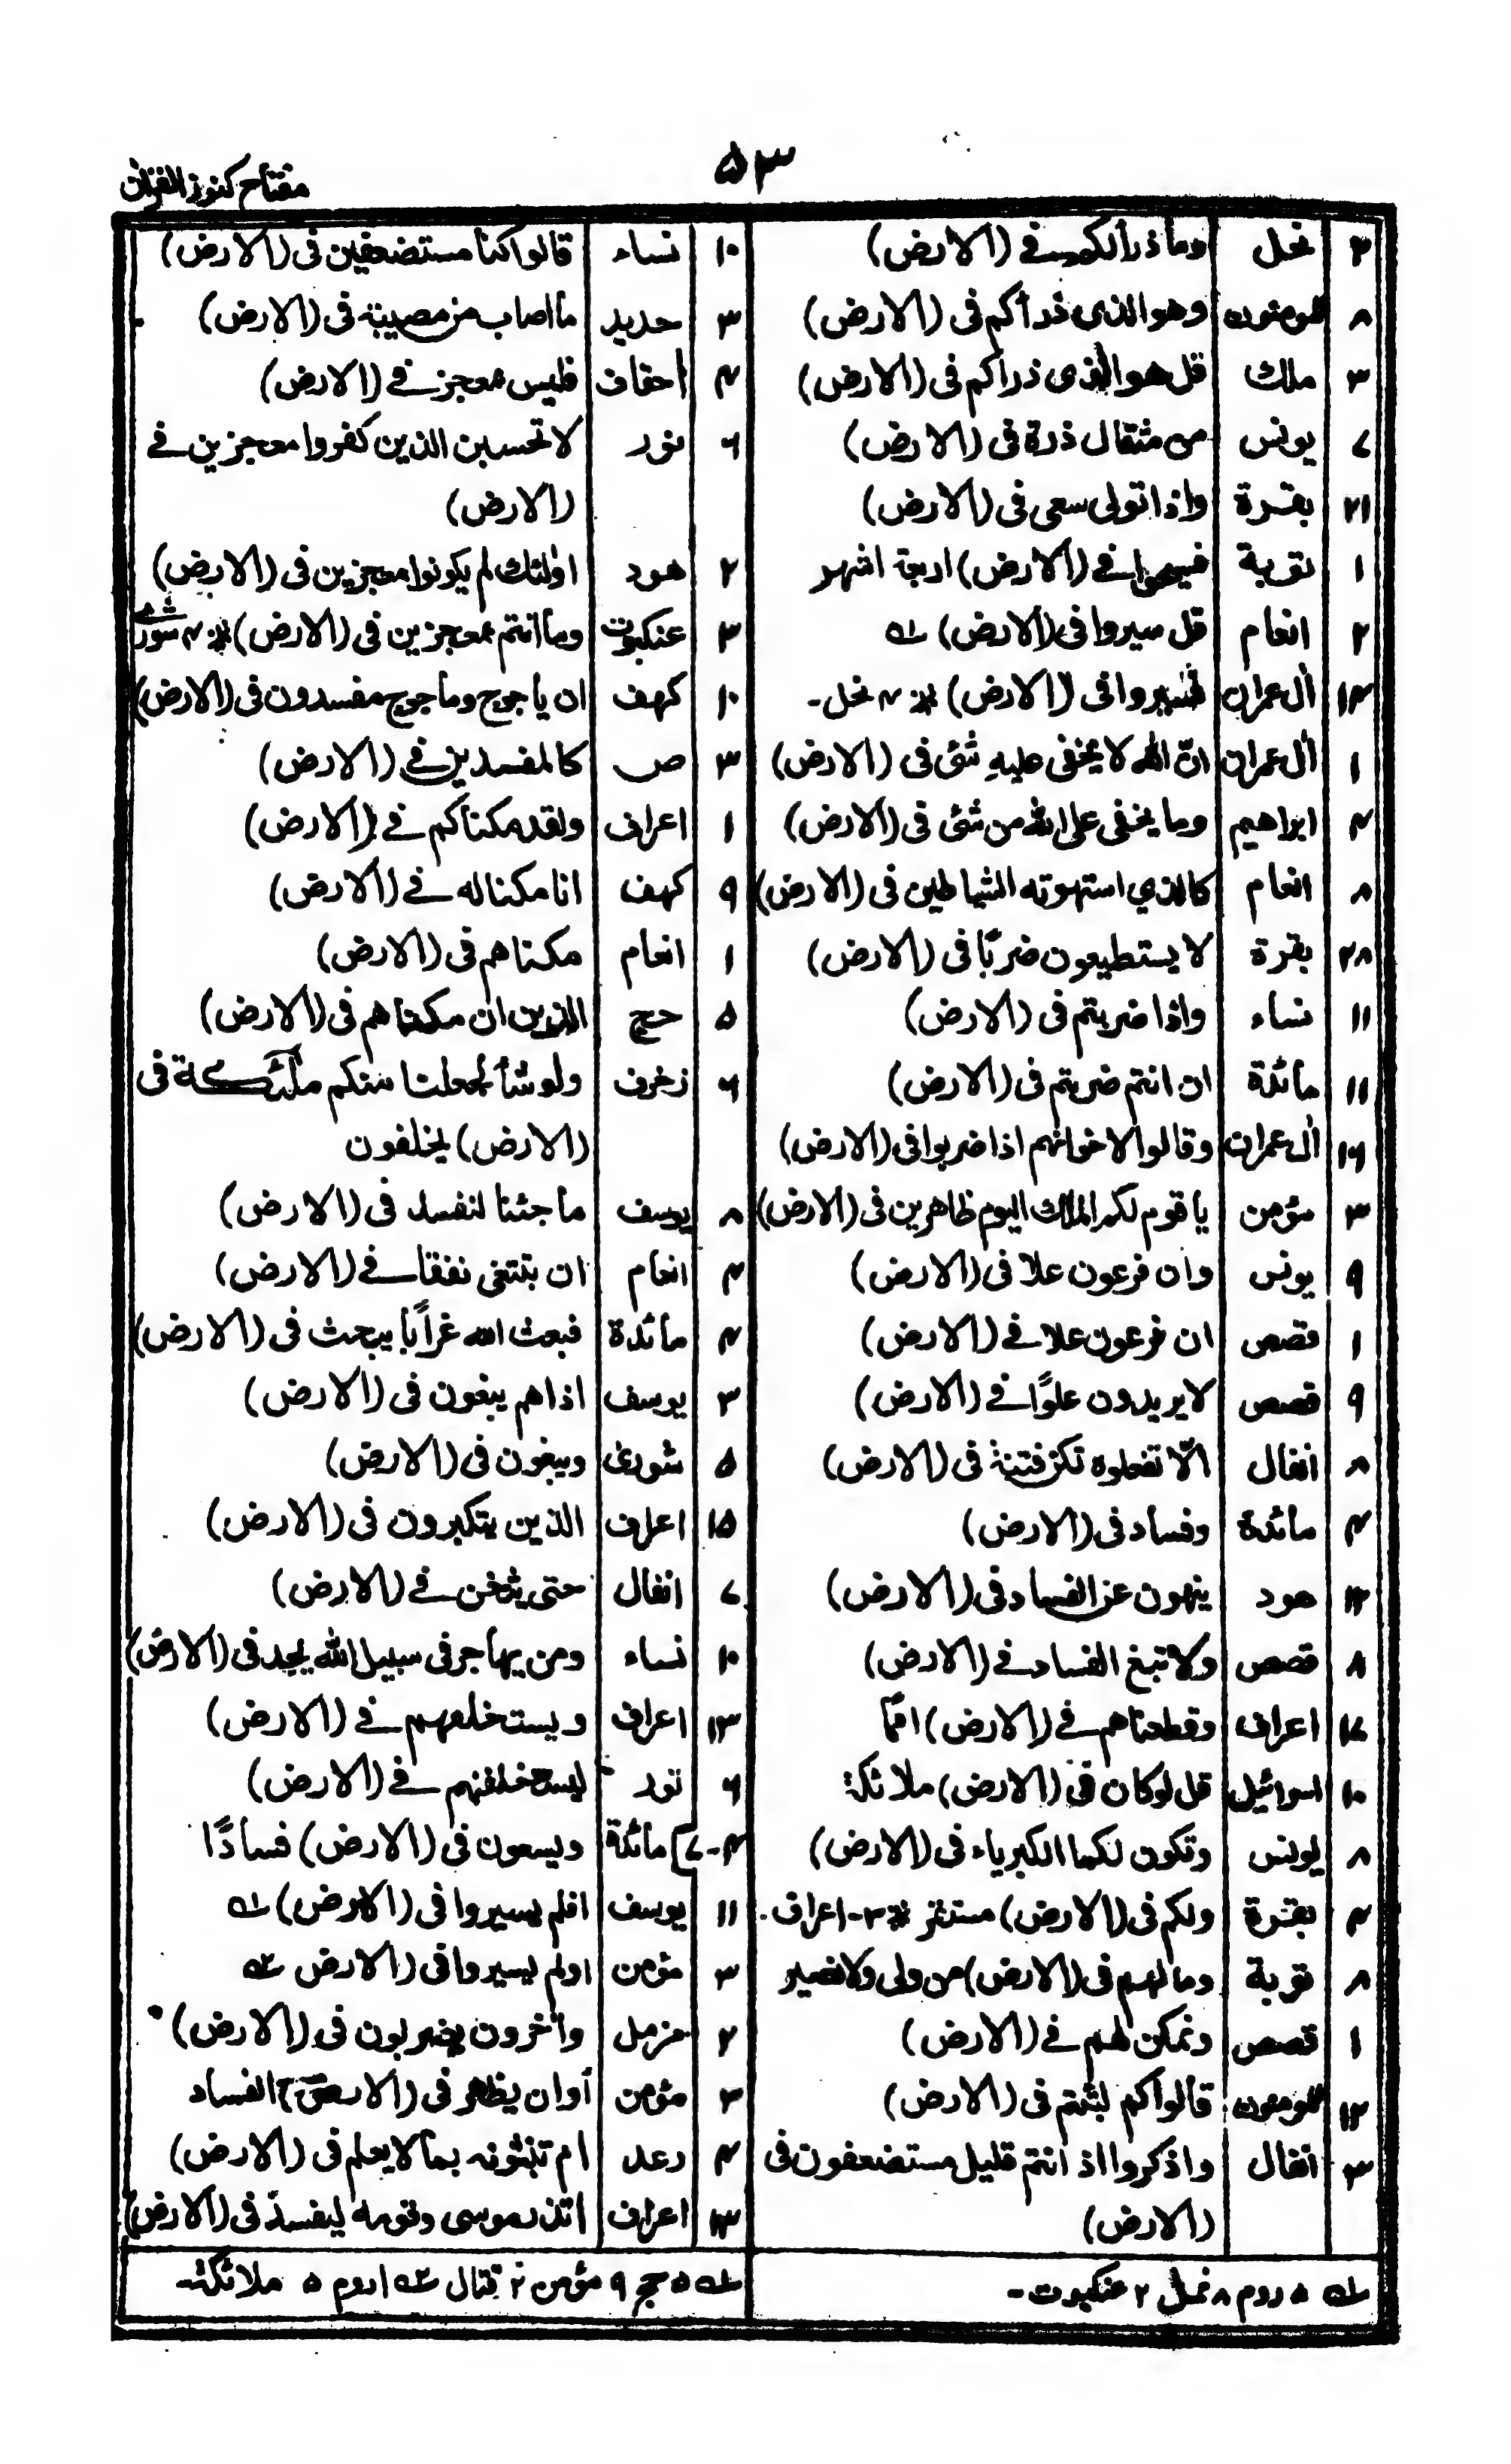 ۵۳
مفتاح کنوز القرآن
۲ نحل وما ذرأ لکم فی (الارض)
۸ المومنون وهو الذی ذرأکم فی (الارض)
۳ ملك قل هو الذی ذراکم فی (الارض)
۷ یونس من مثقال ذرة فی (الارض)
۲۱ بقرة واذا تولی سعی فی (الارض)
۱ توبة فسیحوا فی (الارض) اربعة اشهر
۲ انعام قل سیروا فی (الارض) ؎۱
۱۴ اٰل عمران فسیروا فی (الارض) ۴ نحل۔
۱ اٰل عمران انّ الله لا یخفی علیه شئ فی (الارض)
۴ ابراهیم وما یخفی علی الله من شئ فی (الارض)
۸ انعام کالذي استهوته الشیاطین فی (الارض)
۲۸ بقرة لا یستطیعون ضربًا فی (الارض)
۱۱ نساء واذا ضربتم فی (الارض)
۱۱ مائدة ان انتم ضربتم فی (الارض)
۱۶ اٰل عمران وقالوا لاخوانهم اذا ضربوا فی (الارض)
۳ مؤمن یا قوم لکم الملك الیوم ظاهرین فی (الارض)
۹ یونس وان فرعون علا فی (الارض)
۱ قصص ان فرعون علا فی (الارض)
۹ قصص لا یریدون علوًا فی (الارض)
۸ انفال الّا تفعلوه تکن فتنة فی (الارض)
۴ مائدة وفساد فی (الارض)
۱۲ هود ینهون عن الفساد فی (الارض)
۸ قصص ولا تبغ الفساد فی (الارض)
۱۷ اعراف وقطعناهم فی (الارض) امًا
۱۰ اسرائیل قل لوکان فی (الارض) ملائکة
۸ یونس وتکون لکما الکبریاء فی (الارض)
۴ بقرة ولکم فی (الارض) مستقر ۲-اعراف۔
۸ توبة وما لهم فی (الارض) من ولی ولا نصیر
۱ قصص ونمکن لهم فی (الارض)
۱۲ المومنون قالوا کم لبثتم فی (الارض)
۳ انفال واذکروا اذ انتم قلیل مستضعفون فی
(الارض)
؎۱ ۵ روم ۸ نمل ۲ عنکبوت۔
۱۰ نساء قالوا کنا مستضعفین فی (الارض)
۳ حدید ما اصاب من مصیبة فی (الارض)
۴ احقاف فلیس بمعجز فی (الارض)
۶ نور لا تحسبن الذین کفروا معجزین فی
(الارض)
۲ هود اولئك لم یکونوا معجزین فی (الارض)
۳ عنکبوت وما انتم بمعجزین فی (الارض) ۴ شوریٰ
۱۰ کهف ان یاجوج وماجوج مفسدون فی (الارض)
۳ ص کالمفسدین فی (الارض)
۱ اعراف ولقد مکناکم فی (الارض)
۹ کهف انا مکنا له فی (الارض)
۱ انعام مکناهم فی (الارض)
۵ حج الذین ان مکناهم فی (الارض)
۶ زخرف ولو شأ لجعلنا منکم ملٰئکة فی
(الارض) یخلفون
۸ یوسف ما جئنا لنفسد فی (الارض)
۴ انعام ان تبتغی نفقا فی (الارض)
۴ مائدة فبعث الله غرابًا یبحث فی (الارض)
۳ یوسف اذا هم یبغون فی (الارض)
۵ شوریٰ ویبغون فی (الارض)
۱۵ اعراف الذین یتکبرون فی (الارض)
۷ انفال حتی یثخن فی (الارض)
۱۰ نساء ومن یهاجر فی سبیل الله یجد فی (الارض)
۱۳ اعراف ویستخلفهم فی (الارض)
۶ نور لیستخلفنهم فی (الارض)
۴-۷ مائدة ویسعون فی (الارض) فسادًا
۱۱ یوسف افلم یسیروا فی (الارض) ؎۱
۳ مؤمن اولم یسیروا فی (الارض ؎۲
۲ مزمل واٰخرون یضربون فی (الارض)
۳ مؤمن أو ان یظهر فی (الارض) الفساد
۴ رعد ام تنبئونه بما لا یعلم فی (الارض)
۱۳ اعراف اتذر موسی وقومه لیفسد فی (الارض)
؎۱ ۵ حج ۹ مؤمن ۲ قتال ؎۲ ۱ روم ۵ ملائکة۔